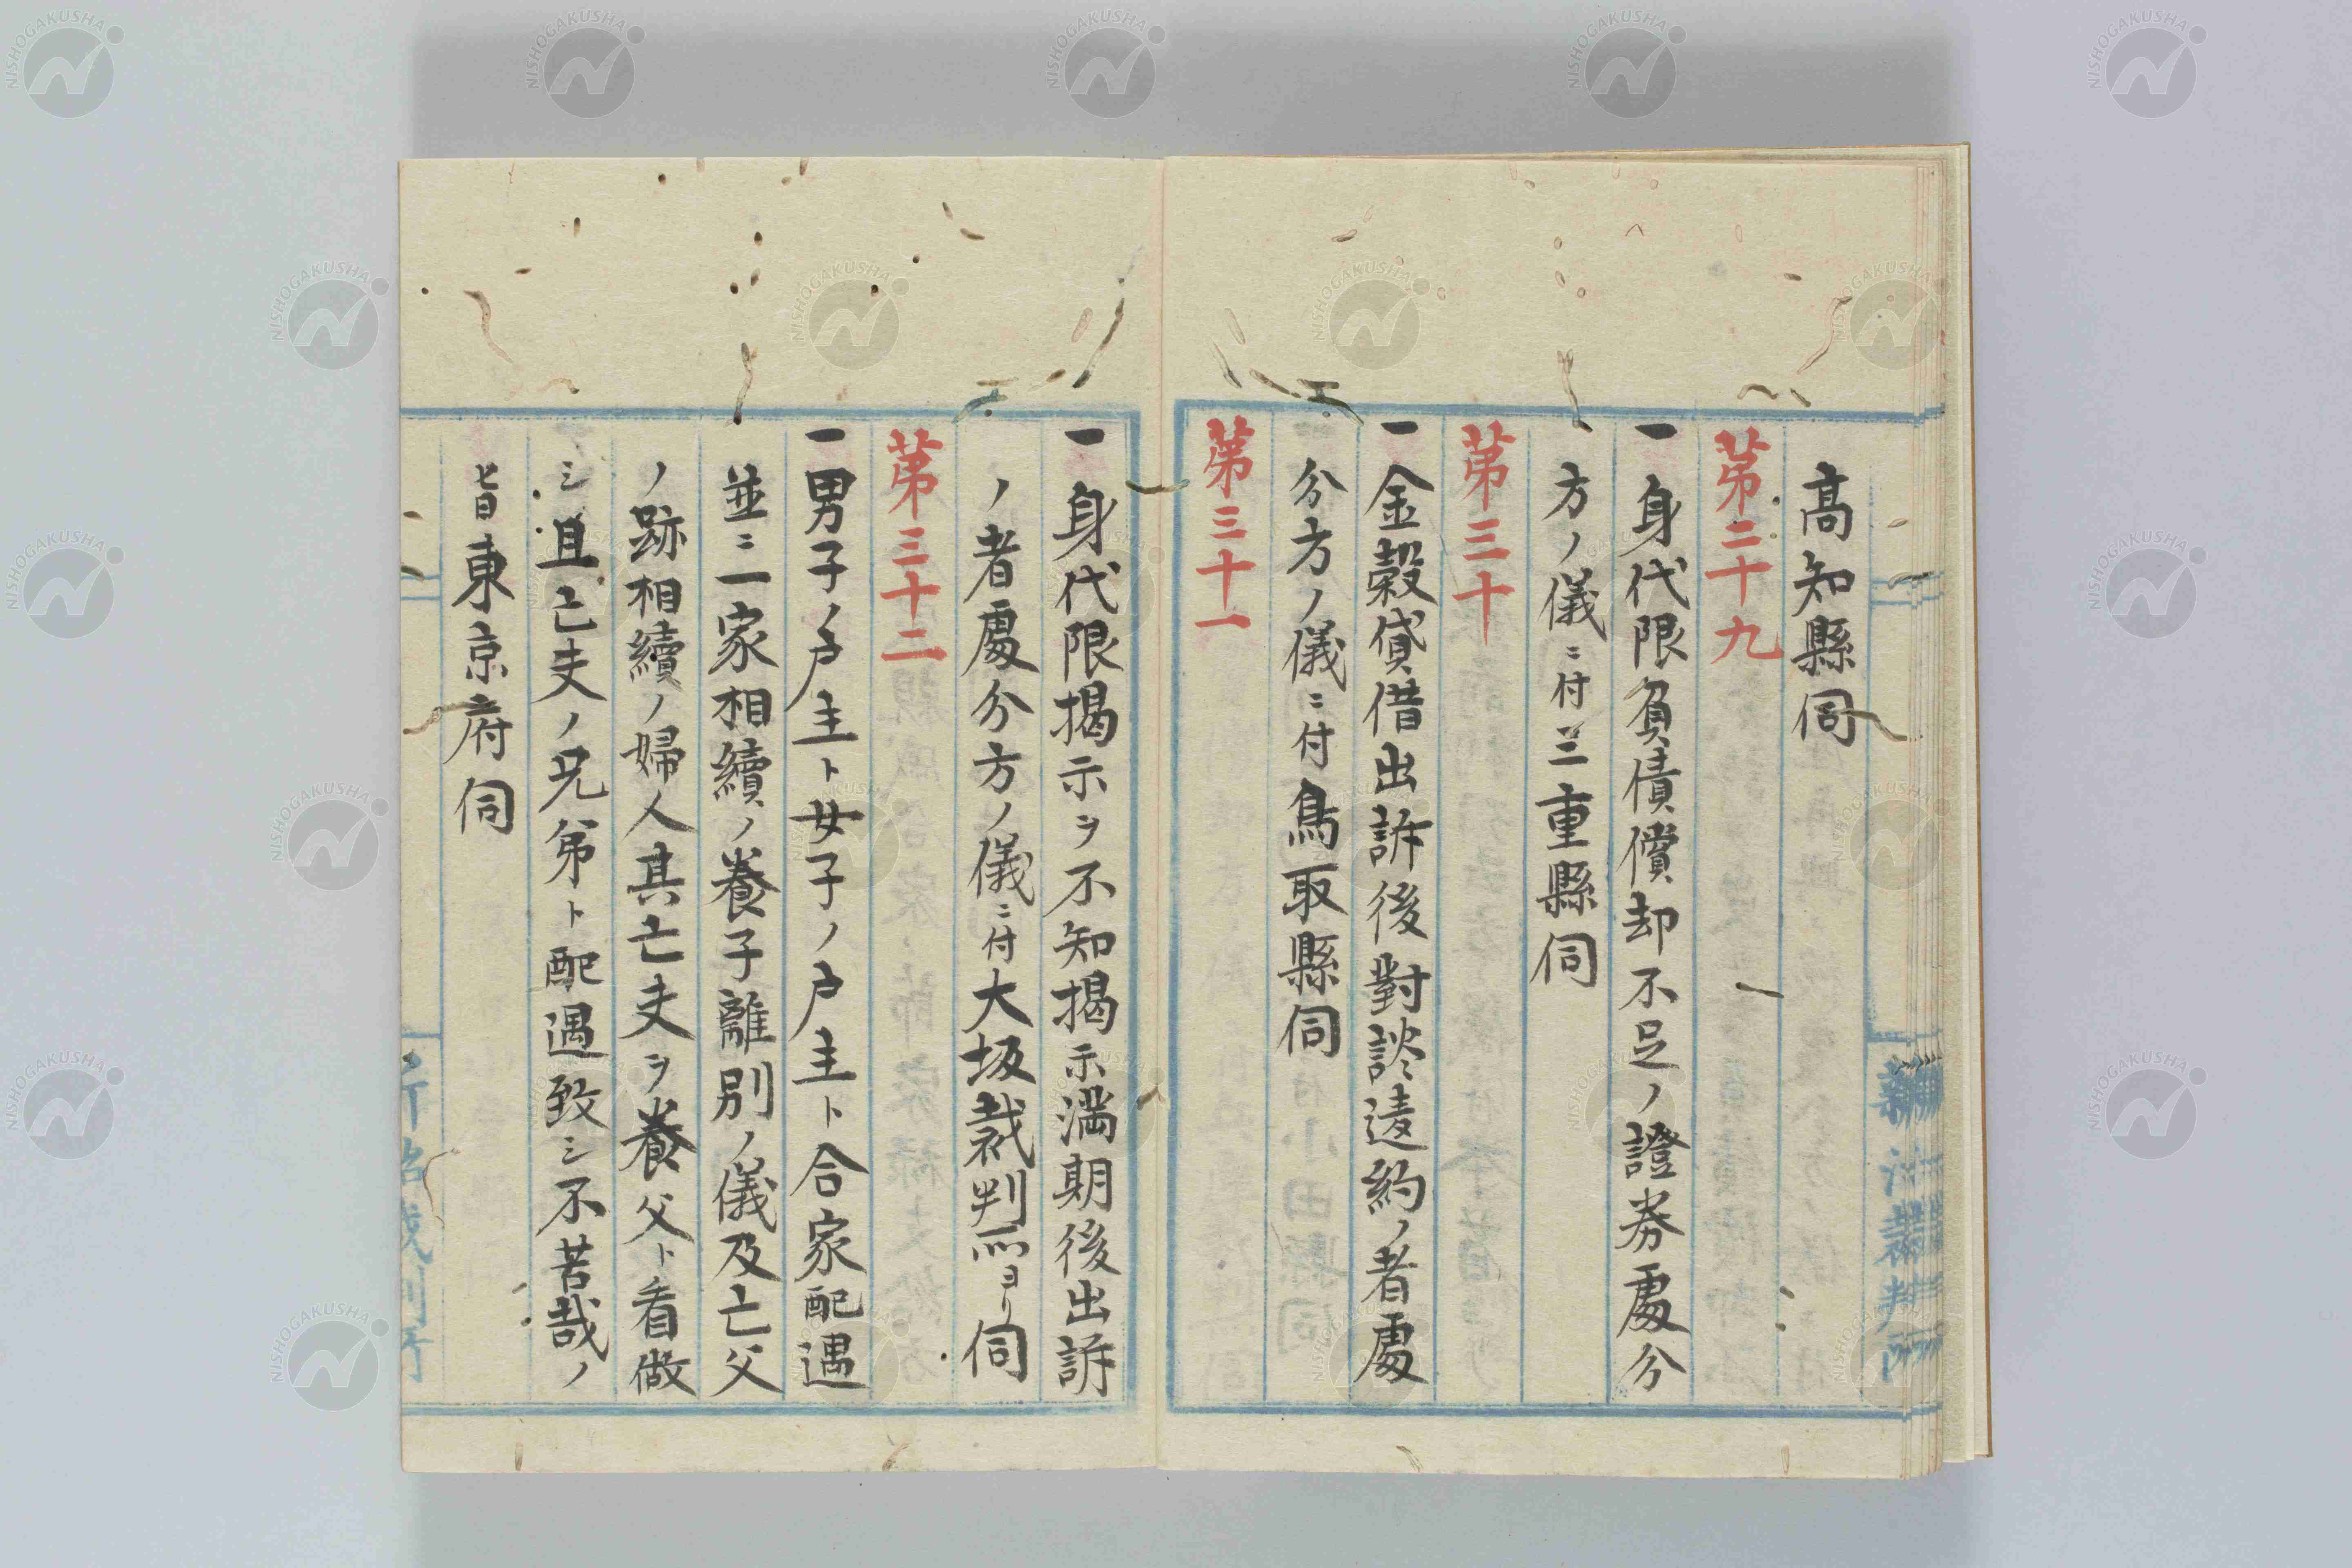 高知縣伺
第二十九
一身代限負債償却不足ノ證券處分
方ノ儀ニ付三重縣伺
第三十
一金穀貸借出訴後對談違約ノ者處
分方ノ儀ニ付鳥取縣伺
第三十一
一身代限揭示ヲ不知揭示満期後出訴
ノ者處分方ノ儀ニ付大坂裁判所ヨリ伺
第三十二
一男子ノ戸主ト女子ノ戸主ト合家配遇
並ニ二家相續ノ養子離別ノ儀及亡父
ノ跡相續ノ婦人其亡夫ヲ養父ト看做
シ且亡夫ノ兄弟ト配遇致シ不苦哉ノ
旨東京府伺
NISHOGAKUSHA